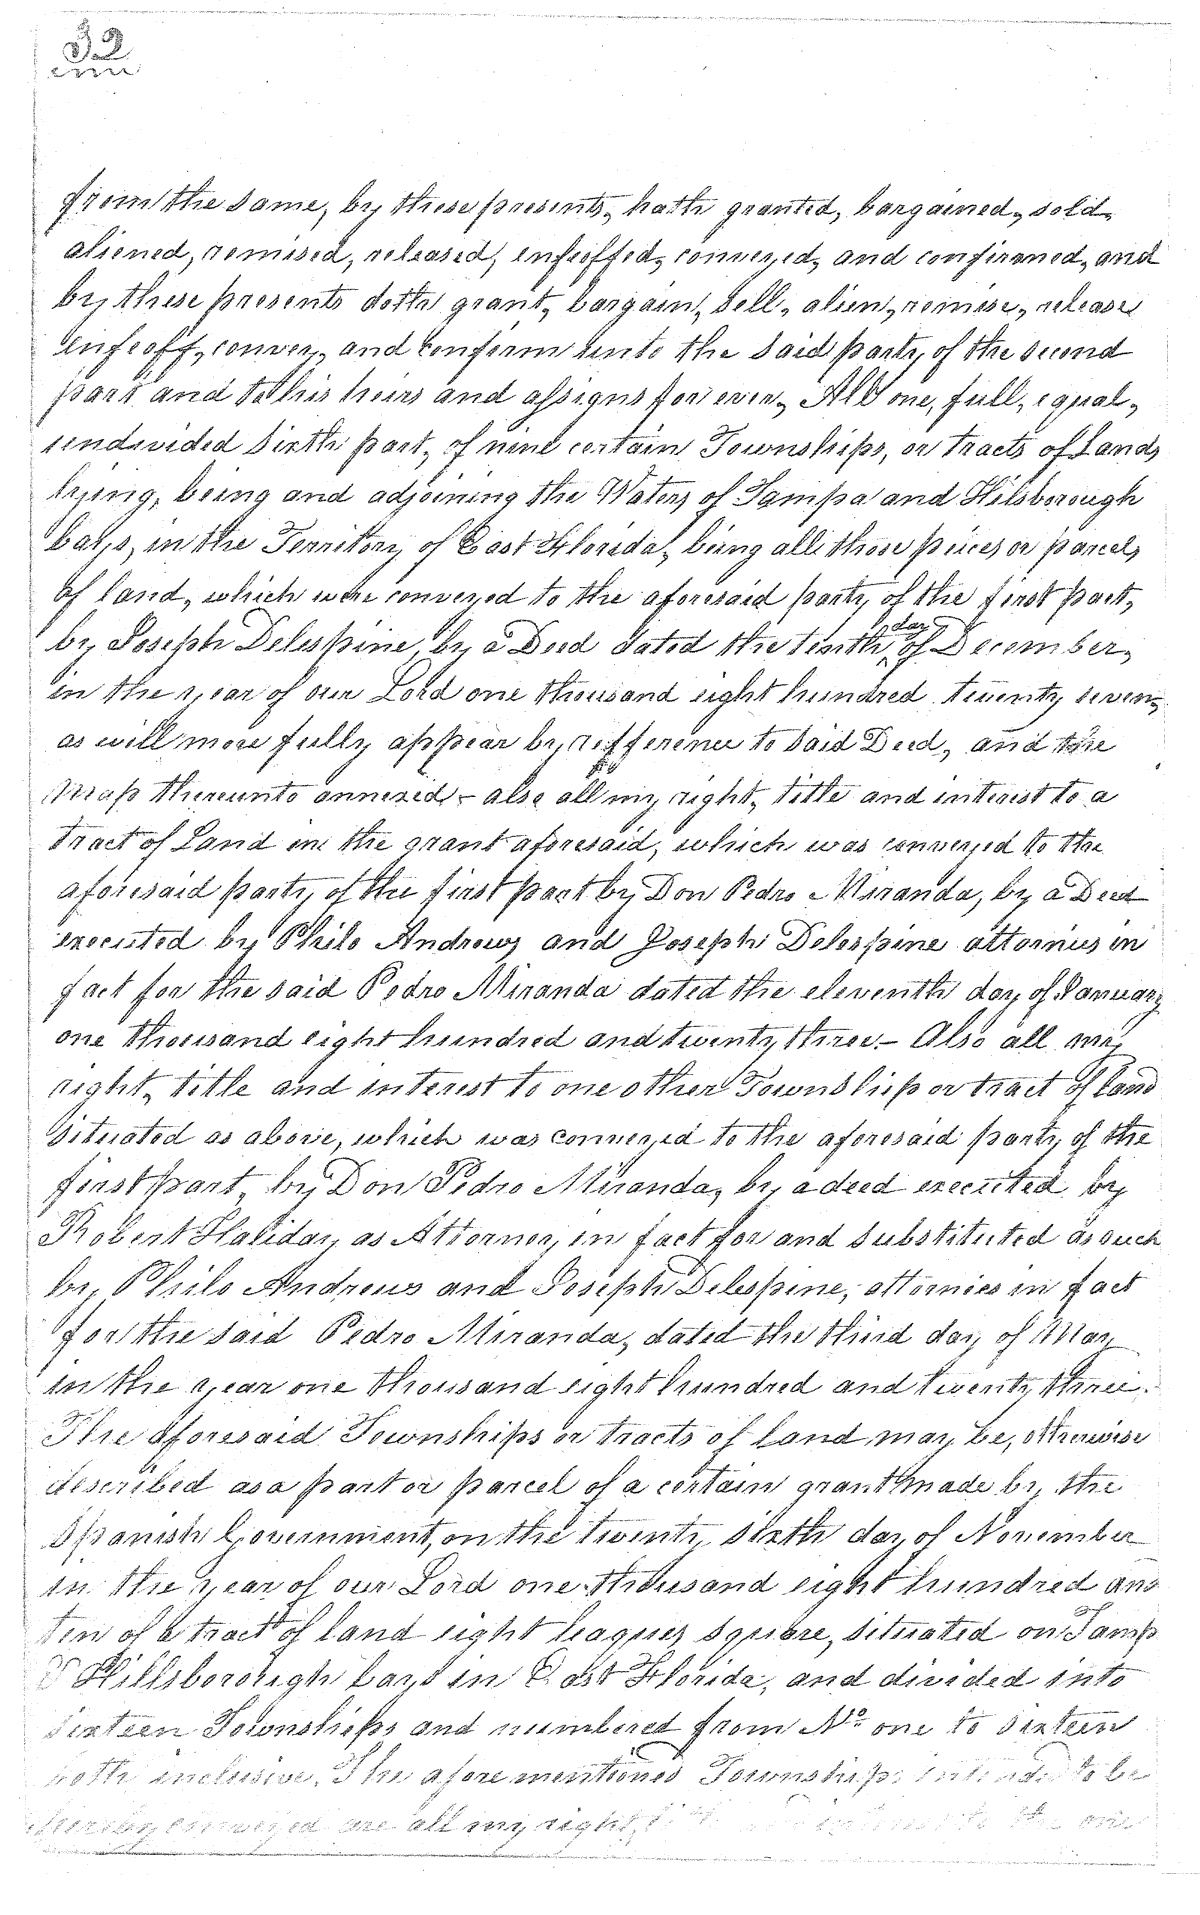 32
from the same, by these presents, hath granted, bargained, sold,
aliened, remised, released, enfeoffed, conveyed, and confirmed, and
by these presents doth grant, bargain, sell, alien, remise, release
enfeoff, convey, and confirm unto the said party of the second
part and to his heirs and assigns for ever, All one, full, equal,
undivided sixth part, of nine certain Townships, or tracts of Land,
lying, being and adjoining the Waters of Tampa and Hilsborough
bays, in the Territory of East Florida, being all those pieces or parcels
of land, which were conveyed to the aforesaid party of the first part,
by Joseph Delespine, by a Deed dated the tenth day of December,
in the year of our Lord one thousand eight hundred twenty seven,
as will more fully appear by refference to said Deed, and the
Map thereunto annexed - also all my right, title and interest to a
tract of Land in the grant aforesaid, which was conveyed to the
aforesaid party of the first part by Don Pedro Miranda, by a Deed
executed by Philo Andrews and Joseph Delespine attornies in
fact for the said Pedro Miranda dated the eleventh day of January
one thousand eight hundred and twenty three. - Also all my
right, title and interest to one other Township or tract of land
situated as above, which was conveyed to the aforesaid party of the
first part, by Don Pedro Miranda, by a deed executed by
Robert Haliday as Attorney in fact for and substituted as such
by Philo Andrews and Joseph Delespine, attornies in fact
for the said Pedro Miranda, dated the third day of May
in the year one thousand eight hundred and twenty three.
The aforesaid Townships or tracts of land may be, otherwise
described as a part or parcel of a certain grant made by the
Spanish Government, on the twenty sixth day of November
in the year of our Lord one thousand eight hundred and
ten of a tract of land eight leagues square, situated on Tamp
& Hillsborough bays in East Florida, and divided into
sixteen Townships and numbered from No. one to sixteen
both inclusive. The afore mentioned Townships intended to be
hereby conveyed are all my right, the one